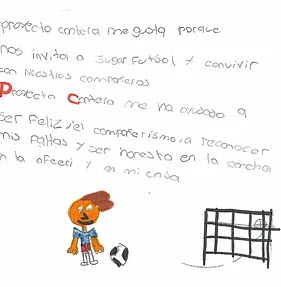 proyecto cantera me gusta porque
nos invita a jugar futbol y convivir
con nuestros compañeros
Proyecto Cantera me ha ayudado a
ser feliz, el compañerismo, a reconocer
mis fallas y ser honesto en la cancha
en la y en mi casa